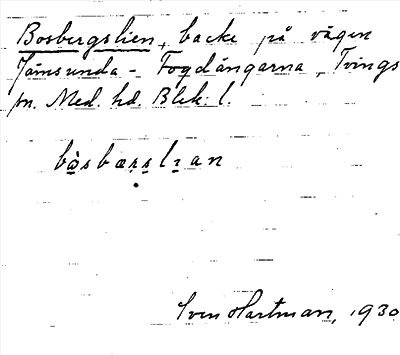 Bosbergslien, backe på vägen
Jämsunda - Fogdängarna, Tvings
sn. Med. hd. Blek. l.
bo̱sbæṛs̱lɪ̱an
Sven Hartman, 1930